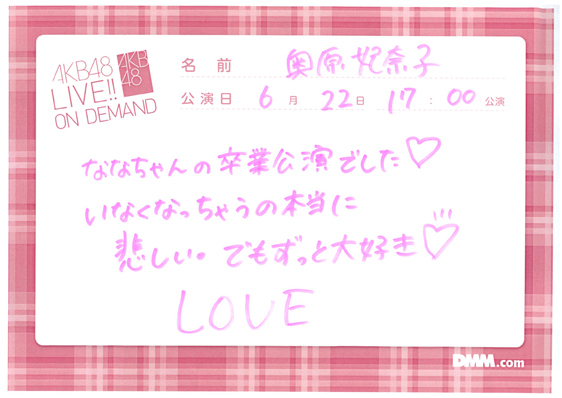 AKB48
LIVE!!
ON DEMAND
AKB
48
名前 奥原妃奈子
公演日 6月 22日 17:00 公演
ななちゃんの卒業公演でした♡
いなくなっちゃうの本当に
悲しい。でもずっと大好き♡
LOVE
DMM.com